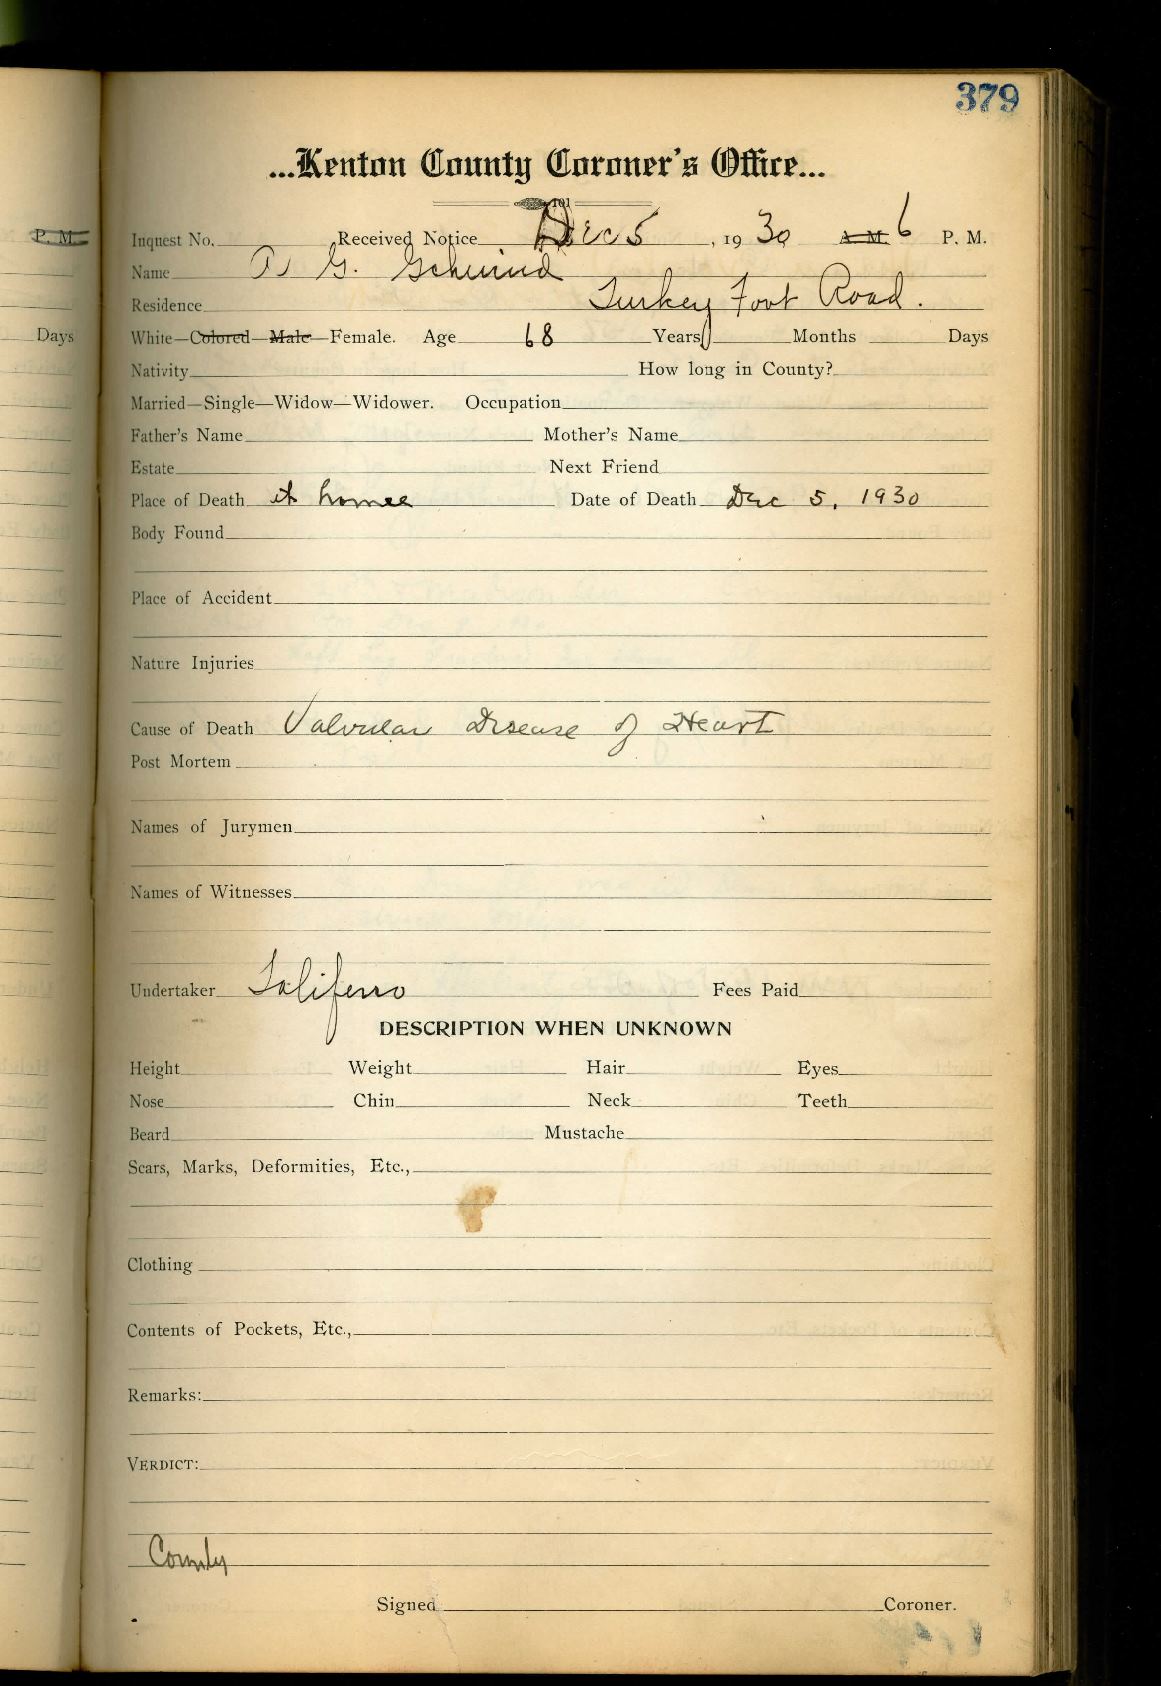 379
...Kenton County Coroner's Office...
101
P. M.
Inquest No. Received Notice Dec 5, 1930 A. M. 6 P. M.
Name G. Schwind
Residence Turkey Foot Road.
Days
White—Colored—Male—Female. Age 68 Years Months Days
Nativity How long in County?
Married—Single—Widow—Widower. Occupation
Father's Name Mother's Name
Estate Next Friend
Place of Death at home Date of Death Dec 5, 1930
Body Found
Place of Accident
Nature Injuries
Cause of Death Valvular Disease of Heart
Post Mortem
Names of Jurymen
Names of Witnesses
Undertaker Taliferro Fees Paid
DESCRIPTION WHEN UNKNOWN
Height Weight Hair Eyes
Nose Chin Neck Teeth
Beard Mustache
Scars, Marks, Deformities, Etc.,
Clothing
Contents of Pockets, Etc.,
Remarks:
VERDICT:
County
Signed Coroner.